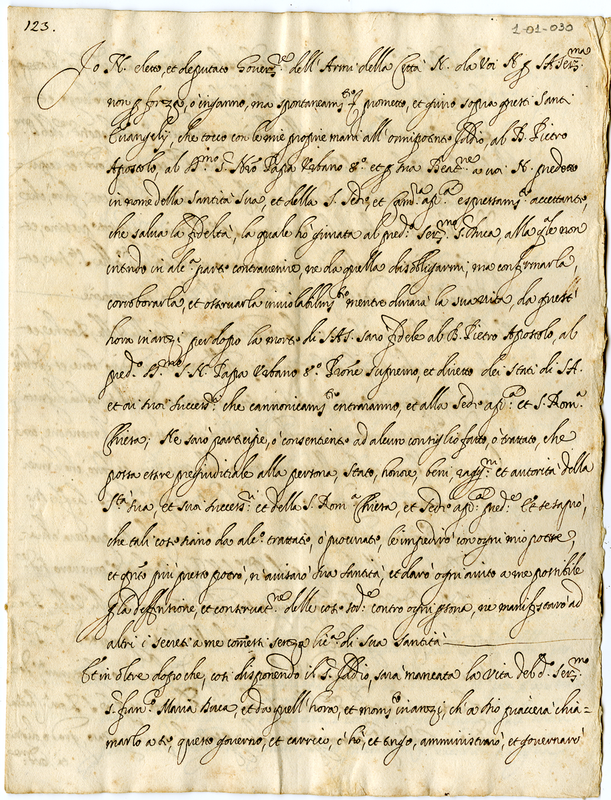 123.
1-01-030
Io N. eletto, et deputato Gover.re dell'Armi della Città N. da Voi N. p S.A. Ser.ma
non p forza, o inganno, ma spontaneam.te prometto, et giuro sopra questi Santi
Evangelij, che tocco con le mie proprie mani all'omnipotente Iddio, al B. Pietro
Apostolo, al B.mo S. N.ro Papa Urbano 8.o et p sua Beat.ne a voi N. predetto
in nome della Santità Sua, et della S. Sede, et Cam.a ap.ca espressam.te accettante,
che salva la fideltà, la quale hò giurata al pred.o Ser.mo S. Duca, alla q.le non
intendo in alc.a parte contravenire, ne da quella disobligarmi, ma confirmarla,
corroborarla, et osservarla inviolabilm.te mentre durarà la sua vita, da quest'
hora inanzi per dopo la morte di S.A.S. sarò fidele al B. Pietro Apostolo, al
pred.o B.mo S. N. Papa Urbano 8.o P̄rone supremo, et diretto dei Stati di S.A.
et ai suoi success.ri che cannonicam.te entraranno, et alla Sede ap.ca et S. Rom.a
Chiesa; Ne sarò partecipe, ò consentiente ad alcun consiglio fatto, o trattato, che
possa essere preiuditiale alla persona, stato, honore, beni, ragg.ni et autorità della
S.tà sua, et suoi success.ri et della S. Rom.a Chiesa, et Sede ap.ca pred.e Et se saprò,
che tali cose siano da alc.o trattate, ò procurate, le impedirò con ogni mio potere,
et q.nto più presto potrò, n'avisarò Sua Santità et darò ogni aiuto a me possibile
p la deffensione, et conservat.ne delle cose sod.e contro ogni p̄sona, ne manifestarò ad
altri i secreti a me com̄essi senza lic.a di Sua Santità
Et in oltre dopo che, così disponendo il S. Iddio, sarà mancata la Vita del d.o Ser.mo
S. Fran.co Maria Duca, et da quell'hora, et mom.to inanzi, ch'a Dio piacerà chia=
marlo a se, questo governo, et carrico, c'hò, et tengo, amministrarò, et governarò